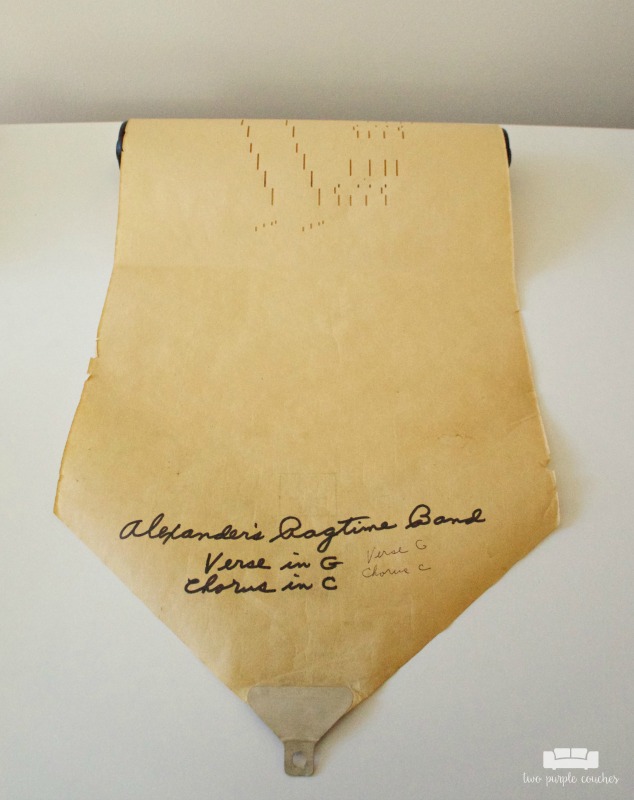 Alexander's Ragtime Band
Verse in G
Chorus in C
Verse G
Chorus C
two purple couches